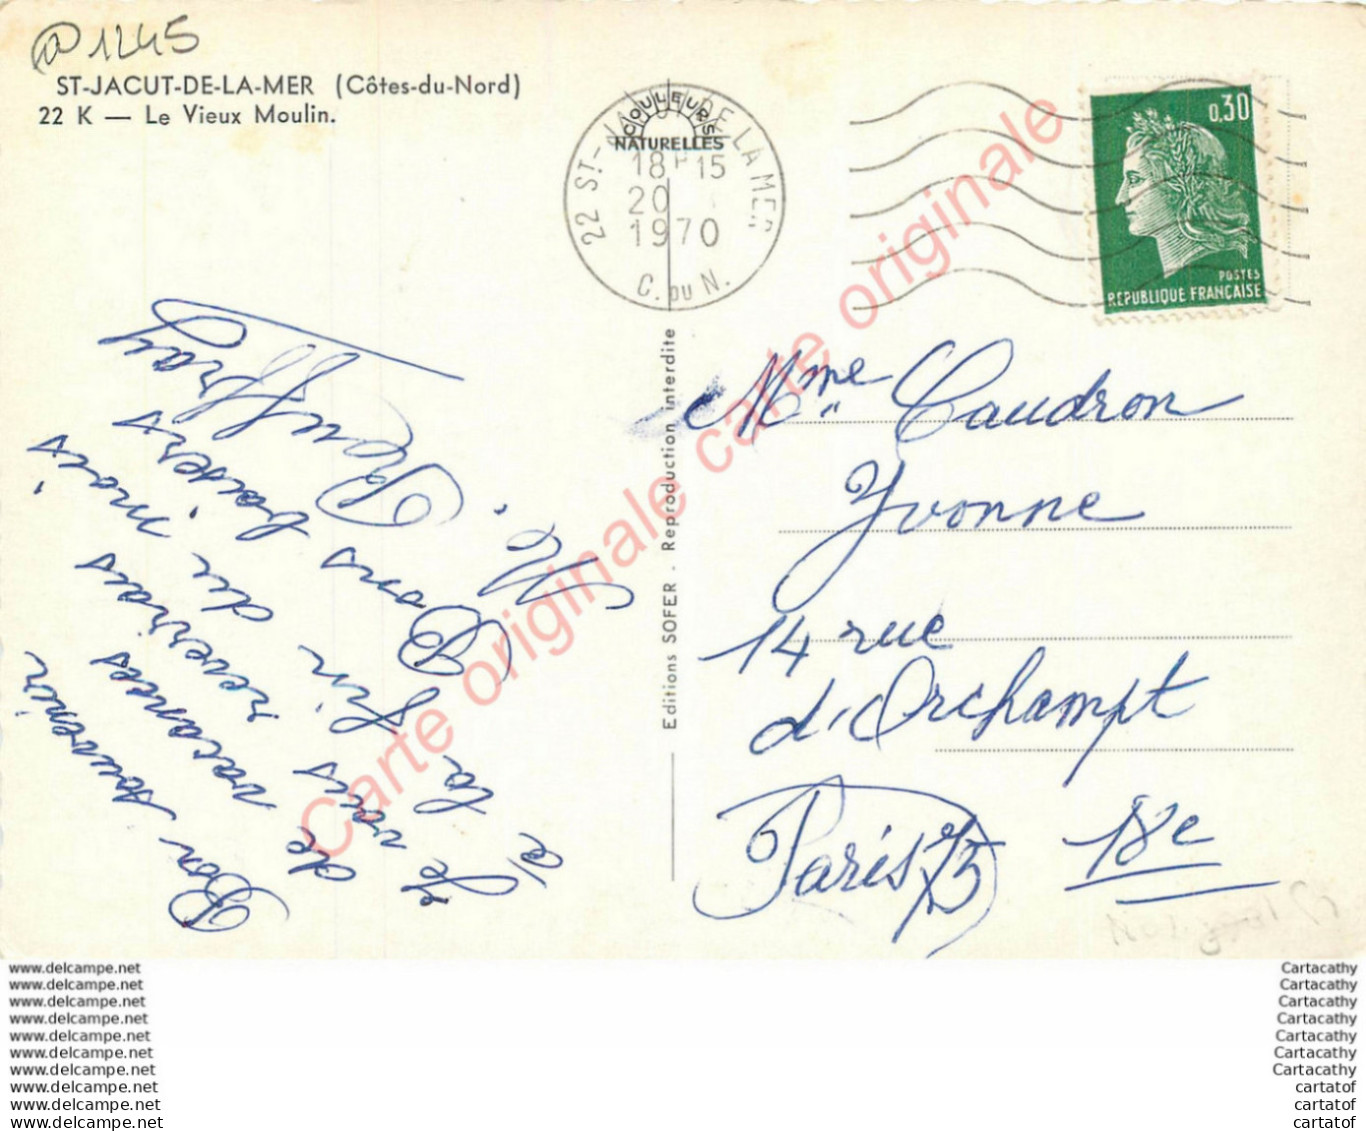 @1245
ST-JACUT-DE-LA-MER (Côtes-du-Nord)
22 K — Le Vieux Moulin.
COULEURS
NATURELLES
22 ST-JACUT DE LA MER
18H15
20
1970
C. DU N.
0,30
POSTES
REPUBLIQUE FRANÇAISE
Bon souvenir
de vacances
Je vais revenir
à la fin du mois
Bons baisers
M.
Editions SOFER - Reproduction interdite
Mme Caudron
Yvonne
14 rue
d'Orchampt
Paris 75 18e
Carte originale carte originale
www.delcampe.net
www.delcampe.net
www.delcampe.net
www.delcampe.net
www.delcampe.net
www.delcampe.net
www.delcampe.net
www.delcampe.net
www.delcampe.net
www.delcampe.net
Cartacathy
Cartacathy
Cartacathy
Cartacathy
Cartacathy
Cartacathy
Cartacathy
cartatof
cartatof
cartatof